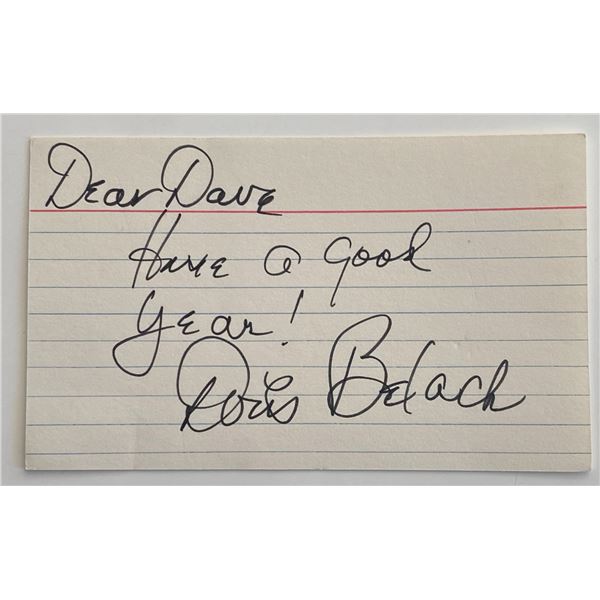 Dear Dave
Have a good
year!
Doris Belack